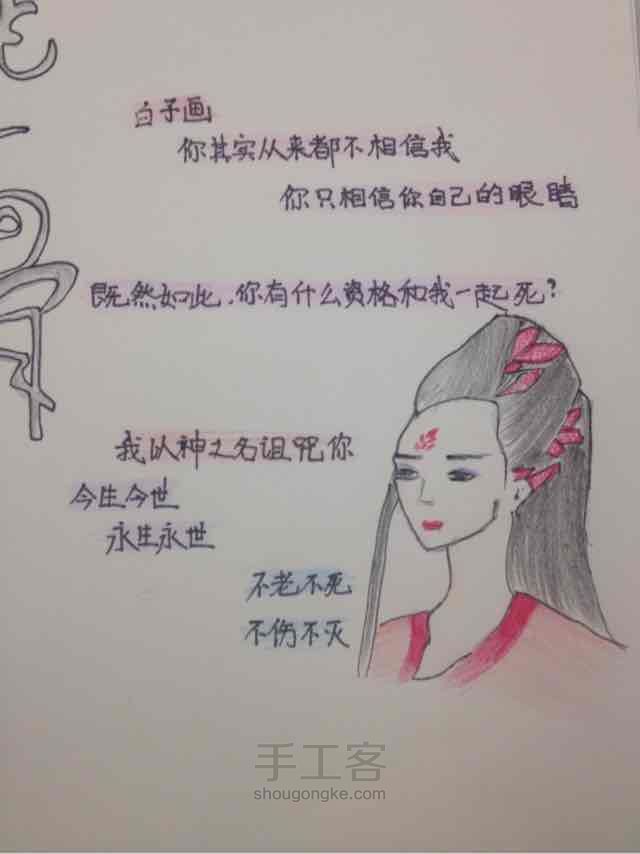 白子画
你其实从来都不相信我
你只相信你自己的眼睛
既然如此，你有什么资格和我一起死？
我以神之名诅咒你
今生今世
永生永世
不老不死
不伤不灭
手工客
shougongke.com